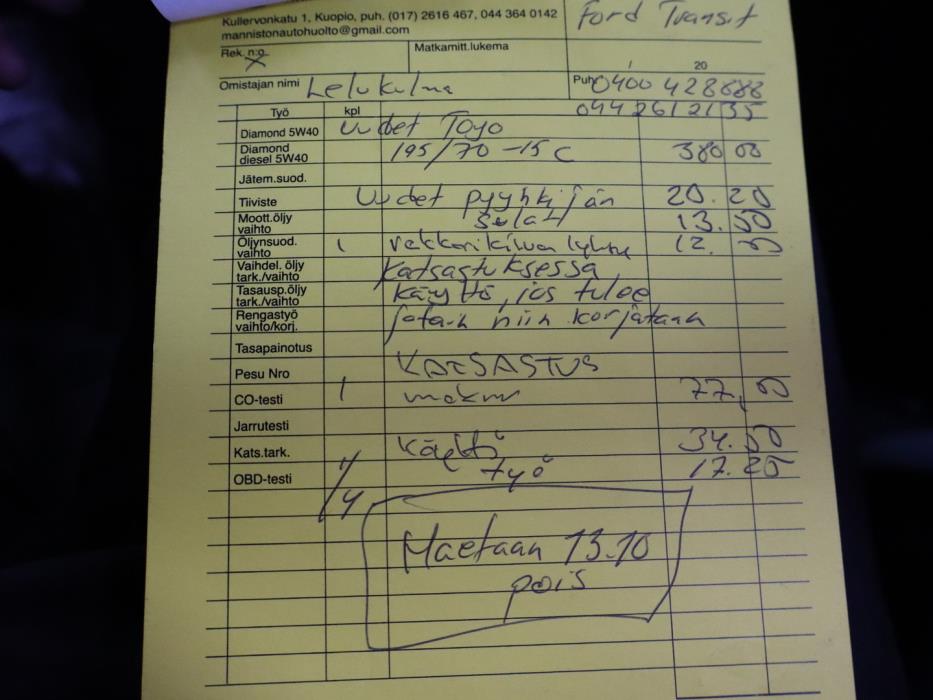 Kullervonkatu 1, Kuopio, puh. (017) 2616 467, 044 364 0142
mannistonautohuolto@gmail.com
Ford Transit
Rek. n:o
X
Matkamitt.lukema
/ 20
Omistajan nimi Lelukulma
Puh 0400 428688
044 2612135
Työ kpl
Diamond 5W40 Uudet Toyo
Diamond diesel 5W40 195/70-15 C 380 00
Jätem.suod.
Tiiviste Uudet pyyhkijän 20.20
Moott.öljy vaihto sulat 13.50
Öljynsuod. vaihto 1 rekkarikilven lyhty 12. 00
Vaihdel. öljy tark./vaihto Katsastuksessa
Tasausp.öljy tark./vaihto käyttö, jos tulee
Rengastyö vaihto/korj. jotain niin korjataan
Tasapainotus
Pesu Nro KATSASTUS
CO-testi 1 maksu 77,00
Jarrutesti
Kats.tark. Käyttö 34.50
OBD-testi 1/4 työ 17.25
Haetaan 13.10
pois